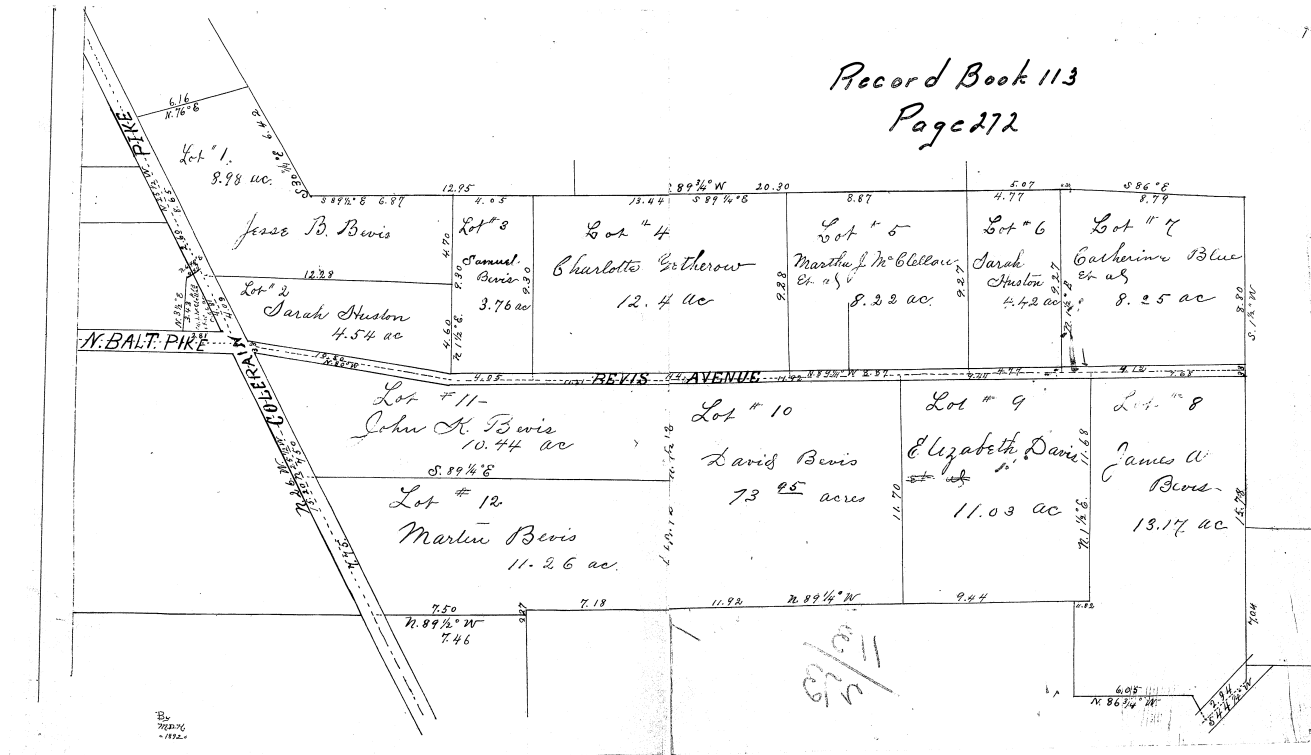 Record Book 113
Page 272
6.16
N. 76° E
PIKE
Lot # 1.
8.98 ac.
S 30 1/4° E 6.42
12.95
S 89 1/2° E 6.87
4.05
13.44
89 3/4° W 20.30
S 89 1/4° E
8.87
5.07
4.77
S 86° E
8.79
Jesse B. Bevis
12.28
Lot # 2
Sarah Huston
4.54 ac
Lot # 3
Samuel
Bevis
3.76 ac
4.70
9.30
9.30
4.60
N. 1 1/2° E.
Lot # 4
Charlotte
12.4 ac
9.28
Lot # 5
Martha J. McClellan
Et als
8.22 ac.
9.27
Lot # 6
Sarah
Huston
4.42 ac
9.27
N. 1 1/2° E
Lot # 7
Catherine Blue
Et als
8.25 ac
8.80
S. 1 1/2° W
N. 3 1/2° E
3.43
N. BALT. PIKE
2.81
COLERAIN
10.50
N. 80° W
4.05
BEVIS AVENUE
11.92
N. 89 1/4° W 8.87
4.77
4.12
7.68
Lot # 11
John K. Bevis
10.44 ac
S. 89 1/4° E
Lot # 12
Martin Bevis
11.26 ac.
7.45
Lot # 10
David Bevis
13 95 acres
11.70
Lot # 9
Elizabeth Davis
et als
11.03 ac
11.68
N. 1 1/2° E.
Lot # 8
James A
Bevis
13.17 ac
15.78
7.50
N. 89 1/2° W
7.46
7.18
11.92
N. 89 1/4° W
9.44
7.04
6.05
N. 86 3/4° W.
2.94
S 44 1/2° W
By
M.D.H.
-1892-